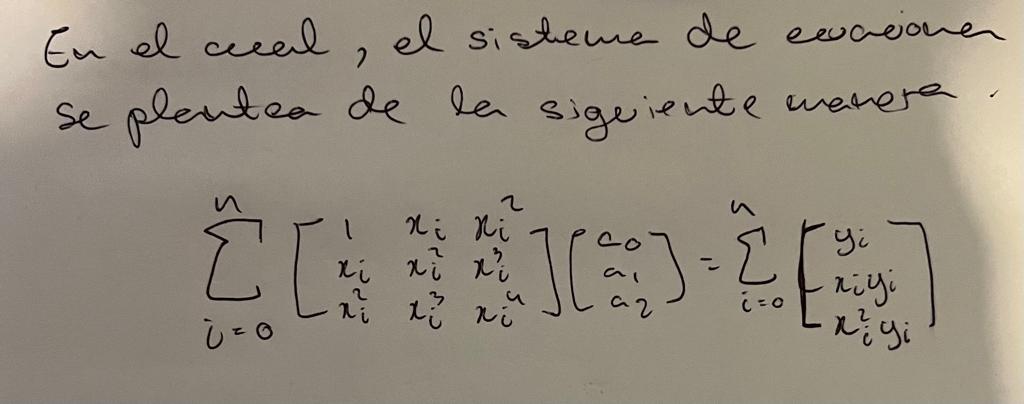 En el cual, el sistema de ecuaciones
se plantea de la siguiente manera.
n
∑
i=0
[1 xᵢ xᵢ²
xᵢ xᵢ² xᵢ³
xᵢ² xᵢ³ xᵢ⁴]
[a₀
a₁
a₂]
=
n
∑
i=0
[yᵢ
xᵢyᵢ
xᵢ²yᵢ]